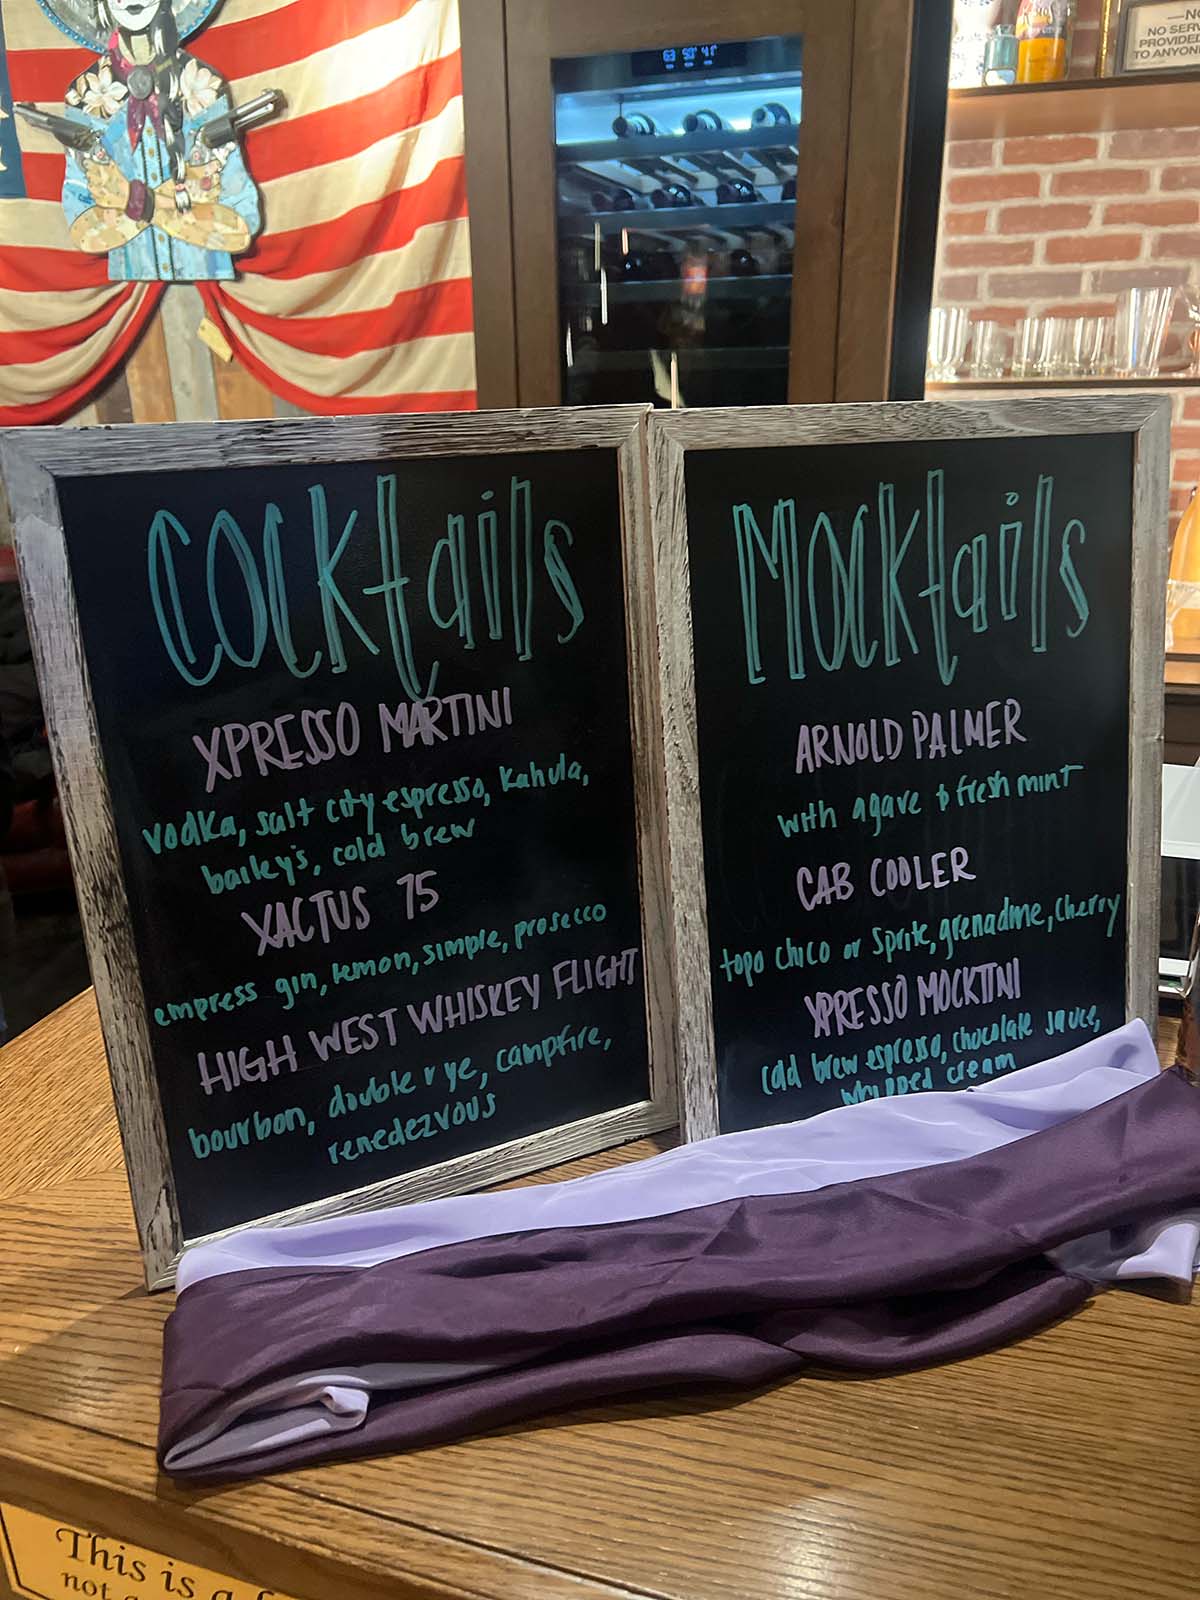 Cocktails
XPRESSO MARTINI
vodka, salt city espresso, kahula,
bailey's, cold brew
XACTUS 75
empress gin, lemon, simple, prosecco
HIGH WEST WHISKEY FLIGHT
bourbon, double rye, campfire,
renedezvous
Mocktails
ARNOLD PALMER
with agave & fresh mint
CAB COOLER
topo chico or sprite, grenadine, cherry
XPRESSO MOCKTINI
cold brew espresso, chocolate sauce,
whipped cream
NO SERV
PROVIDED
TO ANYON
This is a
not